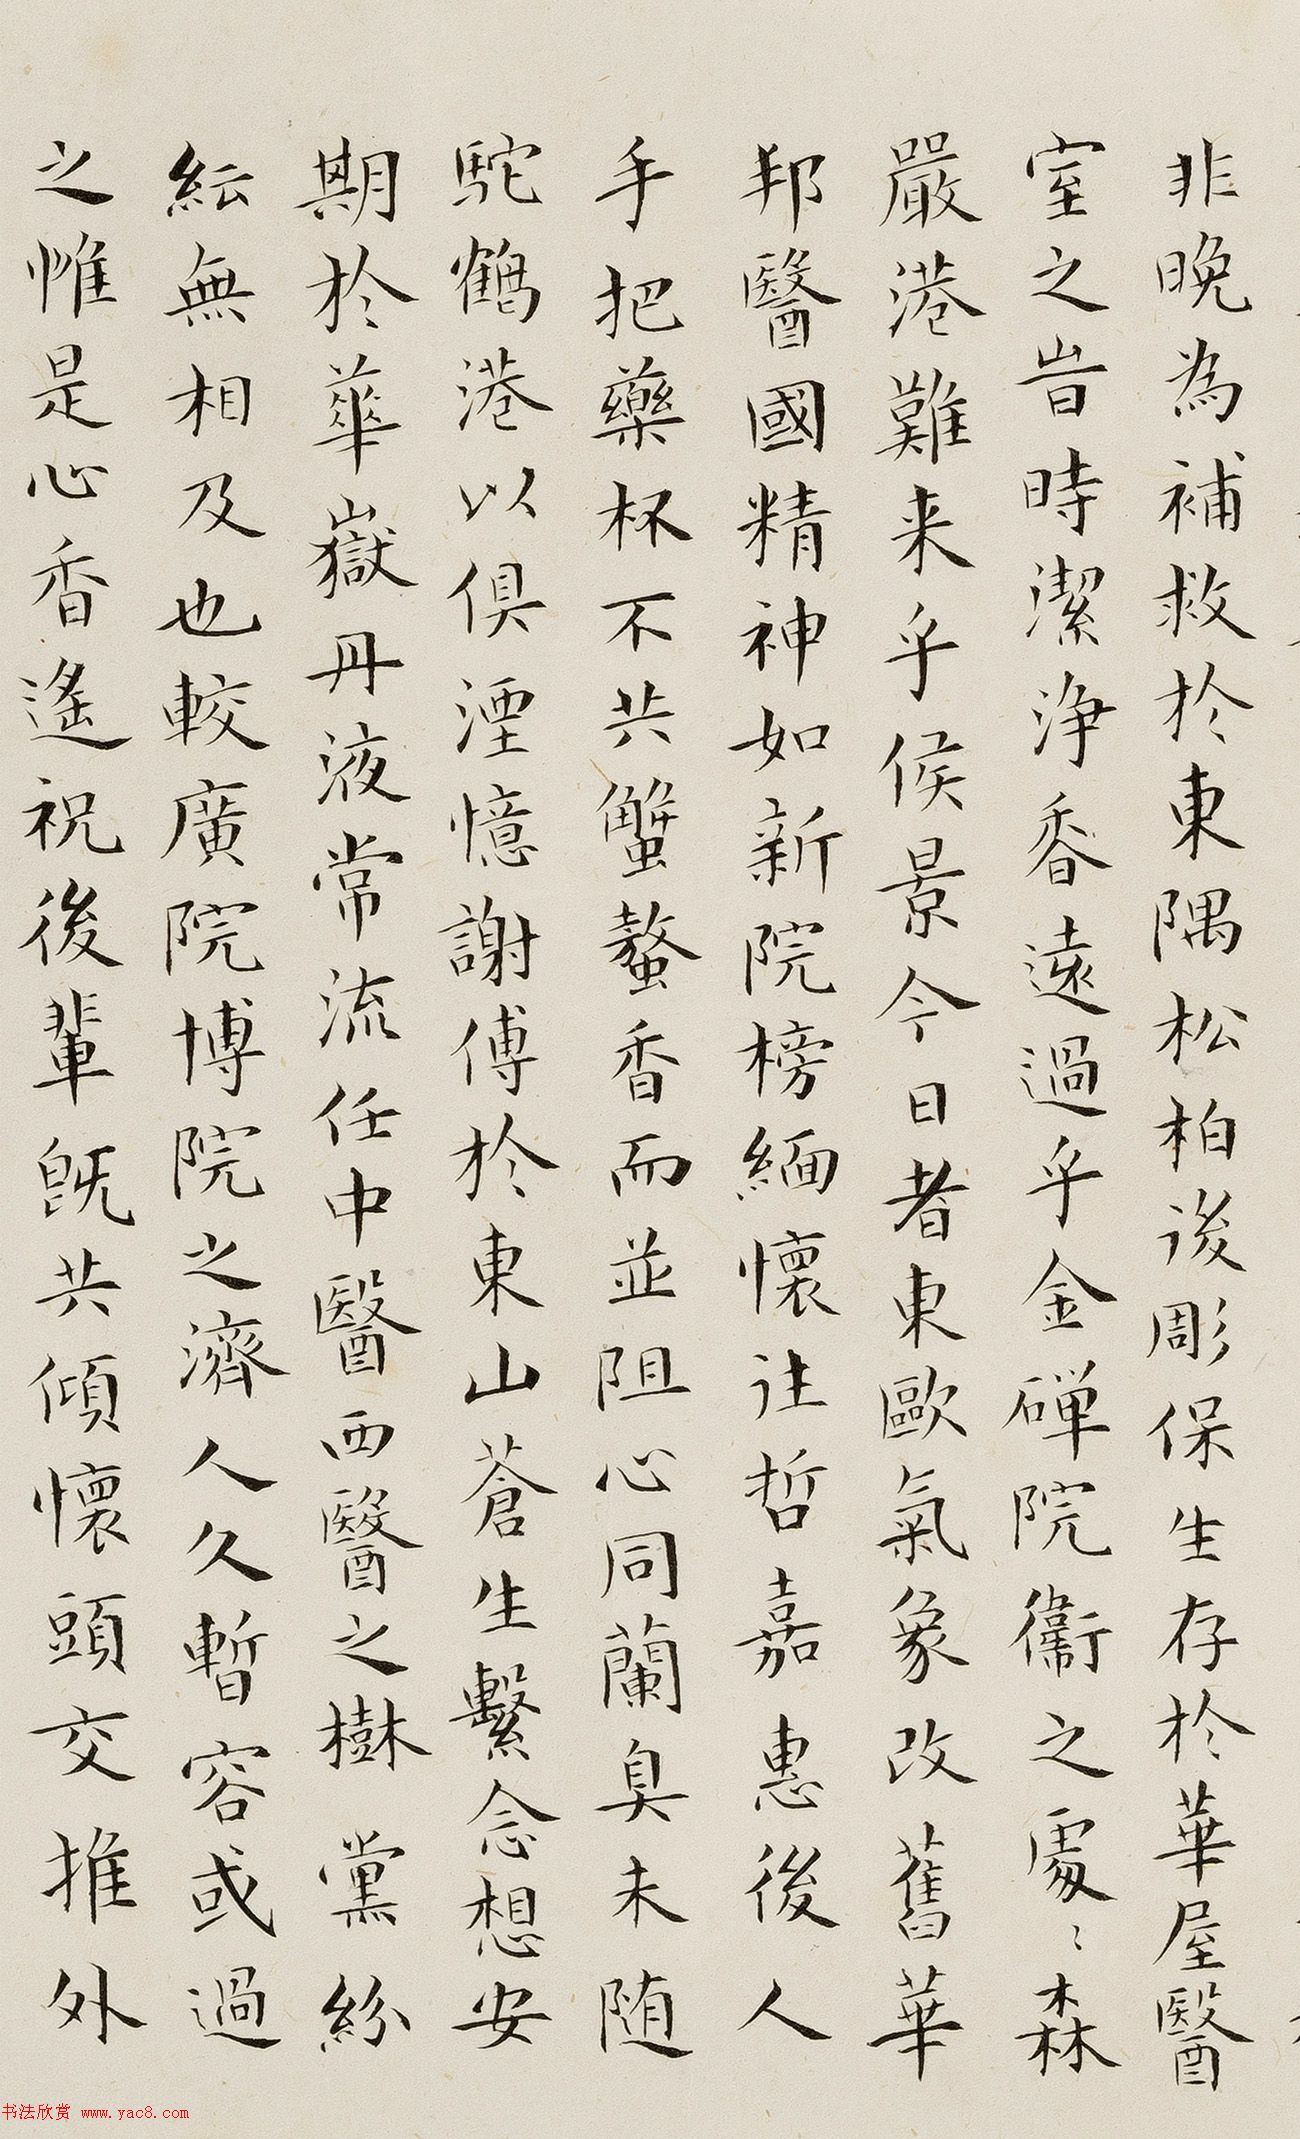 非晚為補救於東隅松柏後彫保生存於華屋醫
室之旹時潔淨香遠過乎金磾院衞之處〻森
嚴港難来乎侯景今日者東歐氣象改舊華
邦醫國精神如新院榜緬懷往哲嘉惠後人
手把藥杯不共蟹螯香而並阻心同蘭臭未随
駝鶴港以俱湮憶謝傅於東山蒼生繫念想安
期於華嶽丹液常流任中醫西醫之樹黨紛
紜無相及也較廣院博院之濟人久暫容或過
之惟是心香遙祝後輩既共傾懷頭交推外
书法欣赏 www.yac8.com